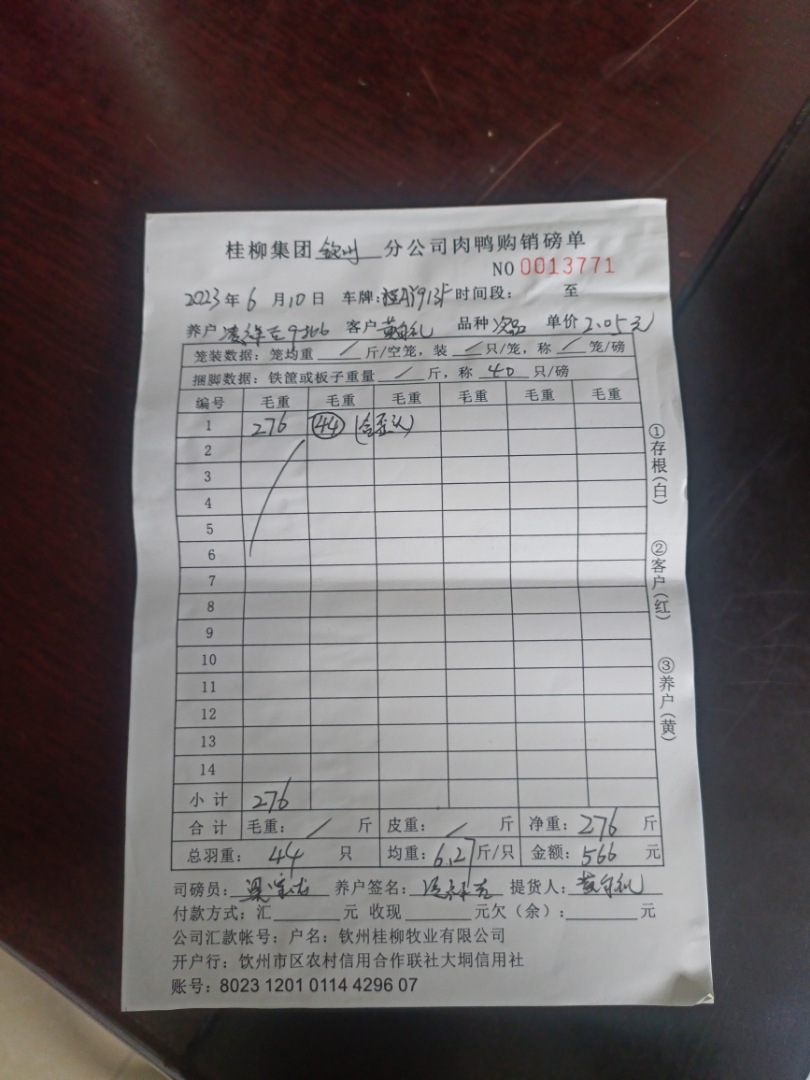 桂柳集团 钦州 分公司肉鸭购销磅单
NO 0013771
2023年6月10日 车牌: 913F 时间段: 至
养户 客户 品种 次品 单价 2.05元
笼装数据：笼均重 / 斤/空笼，装 / 只/笼，称 / 笼/磅
捆脚数据：铁筐或板子重量 / 斤，称 40 只/磅
编号 毛重 毛重 毛重 毛重 毛重 毛重
1 276 44
2
3
4
5
6
7
8
9
10
11
12
13
14
小计 276
合计 毛重： / 斤 皮重： / 斤 净重：276 斤
总羽重： 44 只 均重：6.27斤/只 金额：566 元
司磅员： 养户签名： 提货人：
付款方式：汇 元 收现 元欠（余）： 元
公司汇款帐号：户名：钦州桂柳牧业有限公司
开户行：钦州市区农村信用合作联社大垌信用社
账号：8023 1201 0114 4296 07
①存根（白）
②客户（红）
③养户（黄）